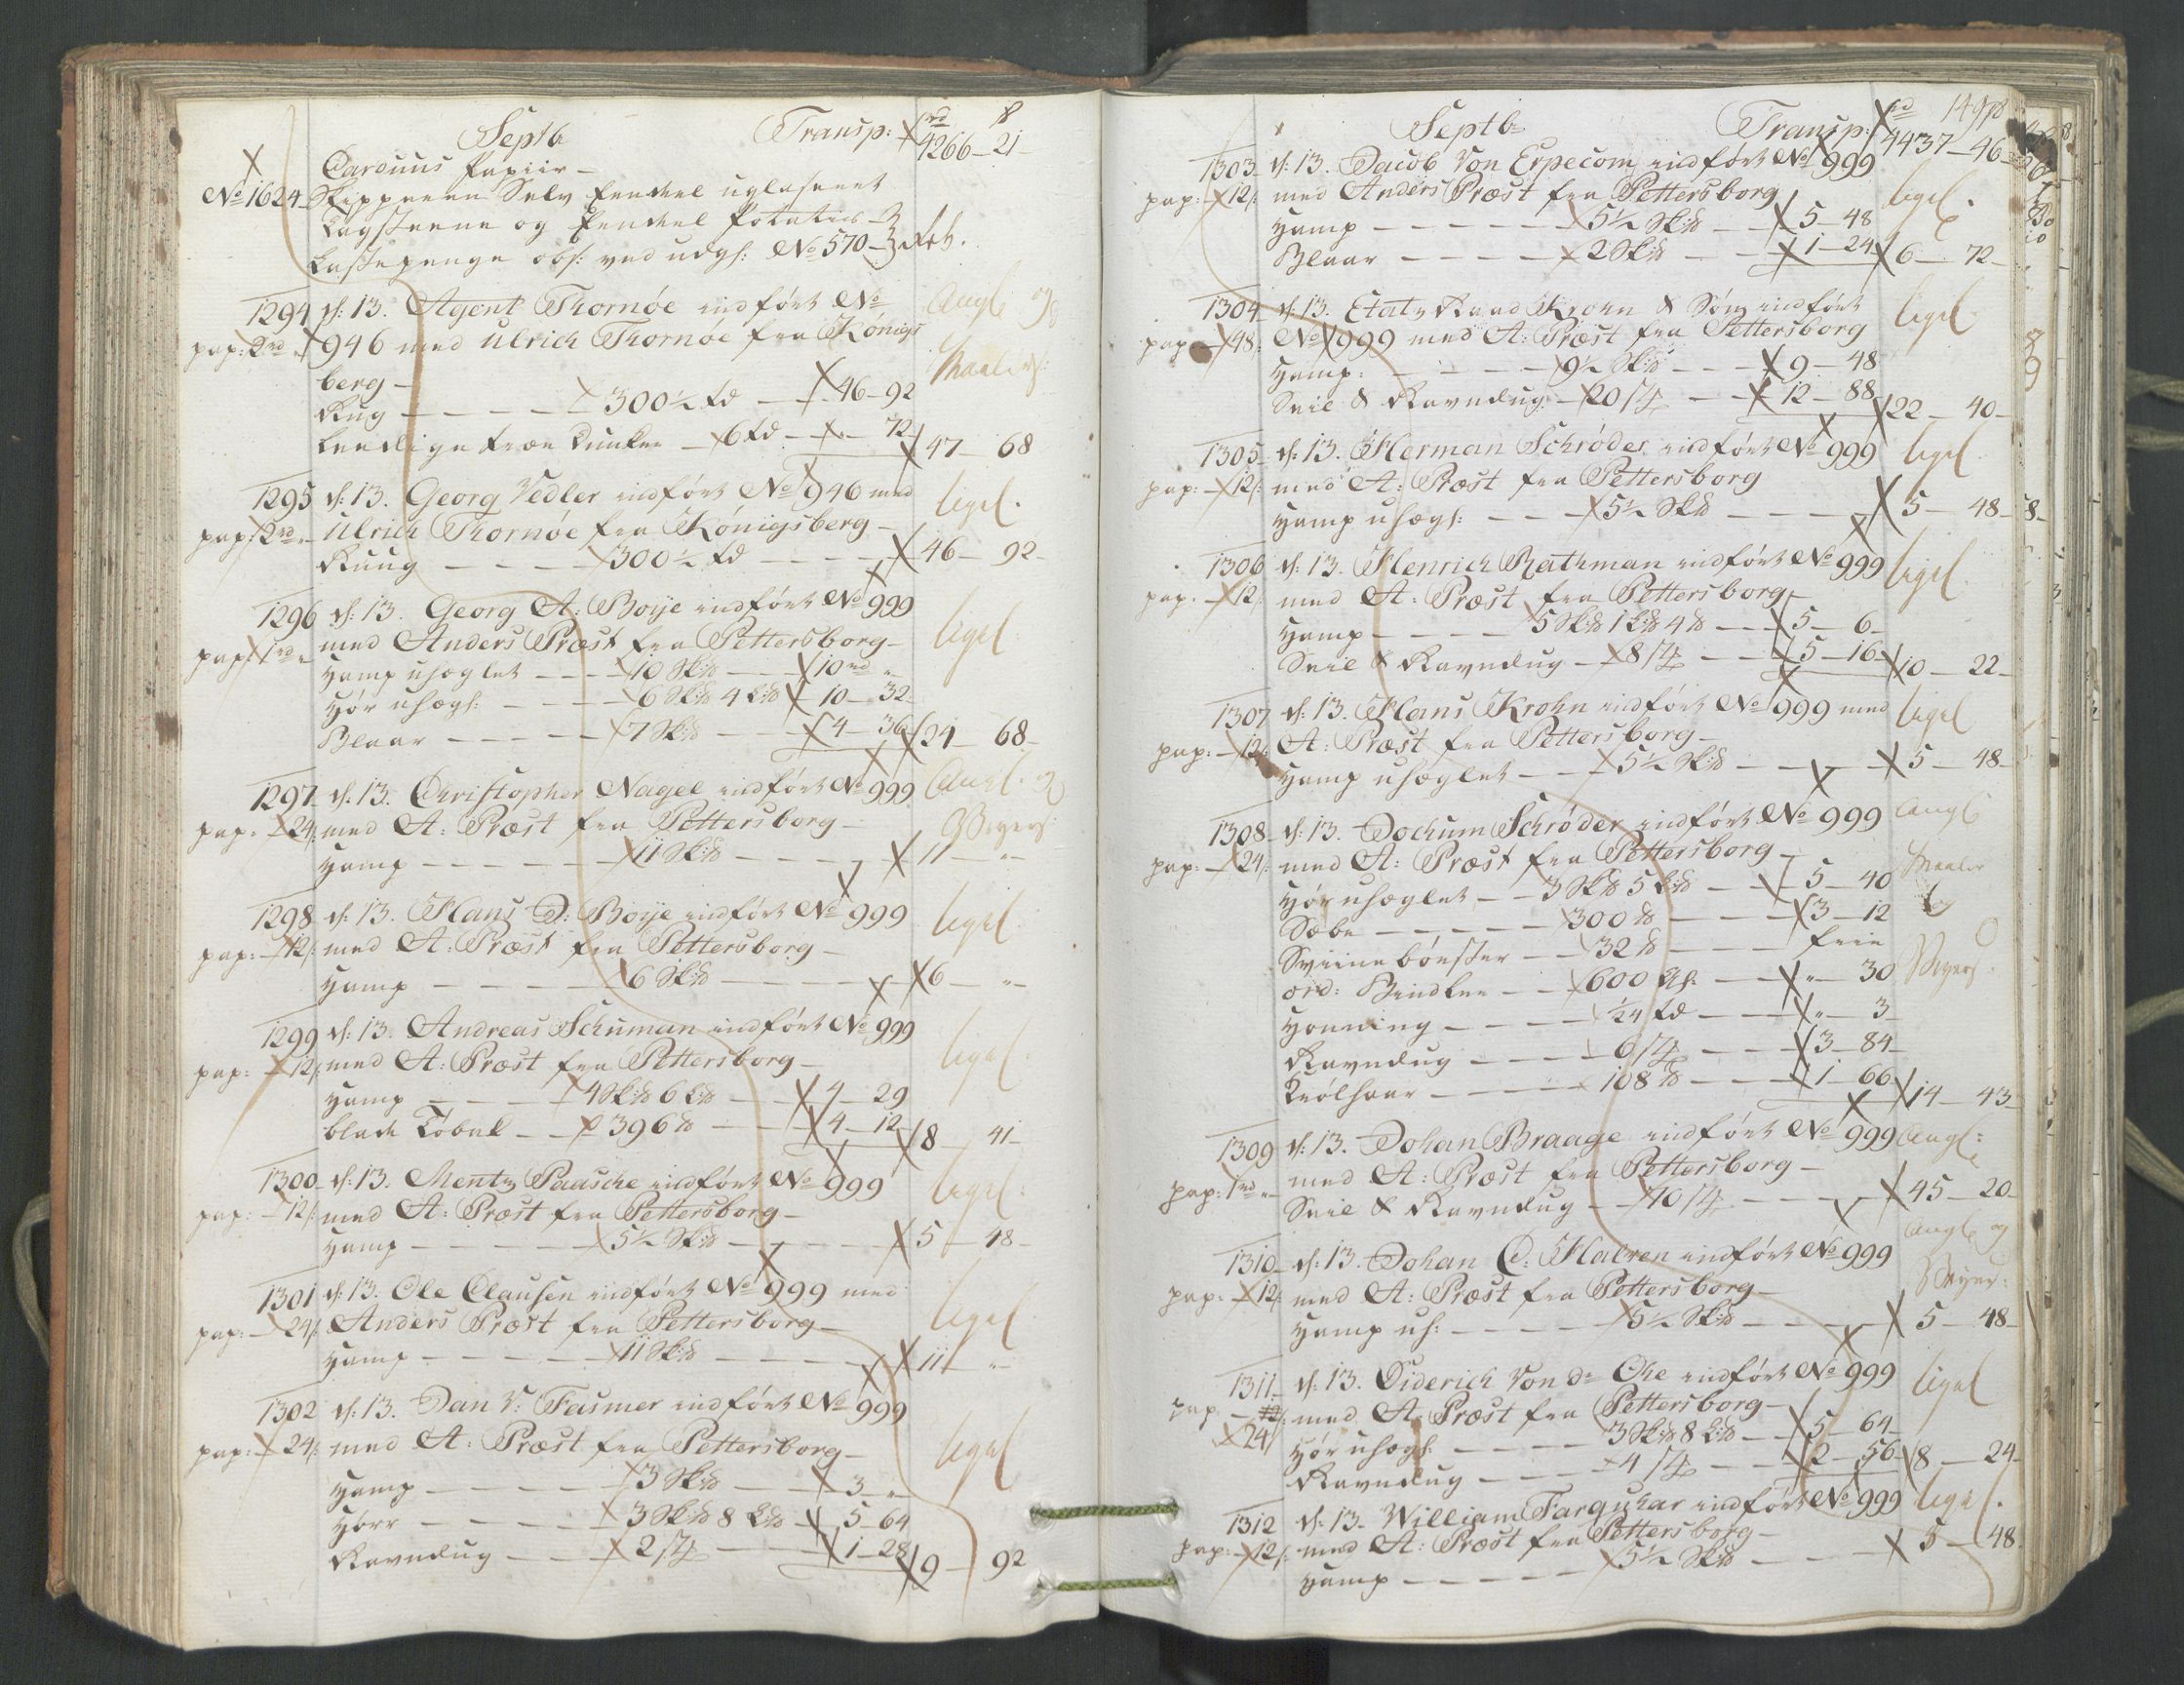 Septb Transp: rd 4266 - 21 -
Carduus Papiir -
No 1624 Skipperen Selv
og
No 570
1294 d: 13. Agent Thornöe indført No
pap: 2rd 946 med Ulrich Thornöe fra Königs
berg -
Rug - 300½ td - 46 - 92
6 td - 72 47 - 68
1295 d: 13. Georg Vedler indført No 946 med ligel.
pap: 2rd Ulrich Thornöe fra Königsberg -
Ruug - 300½ td - 46 - 92 -
1296 d: 13. Georg A: Boije indført No 999
pap: 1rd med Anders Præst fra Pettersborg - ligel
Hamp uheglet - 10 Sk℔ - 10rd "
Hør uhegl: - 6 Sk℔ 4 L℔ 10 - 32
Blaar - 7 Sk℔ - 4 - 36 24 - 68 -
1297 d: 13. Christopher Nagel indført No 999
pap: 24 med A: Præst fra Pettersborg -
Hamp - 11 Sk℔ - 11 - "
1298 d: 13. Hans D: Boije indført No 999 ligel
pap: 12 med A: Præst fra Pettersborg -
Hamp - 6 Sk℔ - 6 - "
1299 d: 13. Andreas Schuman indført No 999
pap: 12 med A: Præst fra Pettersborg - ligel
Hamp - 4 Sk℔ 6 L℔ - 4 - 29
blade Tobak - 396 ℔ - 4 - 12 8 - 41 -
1300 d: 13. Mentz Paasche indført No 999 ligel
pap: 12 med A: Præst fra Pettersborg -
Hamp - 5½ Sk℔ - 5 - 48 -
1301 d: 13. Ole Clausen indført No 999 med
pap: 24 Anders Præst fra Pettersborg - ligel
Hamp - 11 Sk℔ - 11 - "
1302 d: 13. Dan V: Fasmer indført No 999
pap: 24 med A: Præst fra Pettersborg - ligel
Hamp - 3 Sk℔ - 3 - "
Hørr - 3 Sk℔ 8 L℔ 5 - 64
Ravndug - 2 - 1 - 28 9 - 92
Septb Transp: rd 4437 - 46
1303 d: 13. Jacob Von Erpecom indført No 999
pap: 12 med Anders Præst fra Pettersborg ligel.
Hamp - 5½ Sk℔ - 5 - 48
Blaar - 2 Sk℔ - 1 - 24 6 - 72 -
1304 d: 13. Etatz Raad Krohn & Søn indført ligel
pap: 48 No 999 med A: Præst fra Pettersborg
Hamp: - 9½ Sk℔ - 9 - 48
Seil & Ravndug - 20 - 12 - 88 22 - 40 -
1305 d: 13. Herman Schröder indført No 999 ligel
pap: 12 med A: Præst fra Pettersborg
Hamp uhegl: - 5½ Sk℔ - 5 - 48 -
1306 d: 13. Henrich Rathman indført No 999 ligel
pap: 12 med A: Præst fra Pettersborg -
Hamp - 5 Sk℔ 1 L℔ 4 ℔ - 5 - 6 -
Seil & Ravndug - 8 - 5 - 16 10 - 22 -
1307 d: 13. Hans Krohn indført No 999 med ligel
pap: 12 A: Præst fra Pettersborg -
Hamp uheglet - 5½ Sk℔ - 5 - 48 -
1308 d: 13. Jochum Schröder indført No 999
pap: 24 med A: Præst fra Pettersborg -
Hør uheglet - 3 Sk℔ 5 L℔ - 5 - 40
Sæbe - 300 ℔ - 3 - 12
Sviinebørster - 32 ℔ - frie
ord: - 600 - " - 30
Honning - 1/24 td - " - 3
Ravndug - 6 - 3 - 84
108 ℔ - 1 - 66 14 - 43 -
1309 d: 13. Johan Braage indført No 999
pap: 1rd med A: Præst fra Pettersborg -
Seil & Ravndug - 70 - 45 - 20 -
1310 d: 13. Johan C: Halvren indført No 999
pap: 12 med A: Præst fra Pettersborg -
Hamp uh: - 5½ Sk℔ - 5 - 48 -
1311 d: 13. Diderich Von dr Ohe indført No 999 ligel
pap: 24 med A: Præst fra Pettersborg -
Hør uhegl: - 3 Sk℔ 8 L℔ - 5 - 64 -
Ravndug - 4 - 2 - 56 8 - 24
1312 d: 13. William Farquhar indført No 999 ligel.
pap: 12 med A: Præst fra Pettersborg -
Hamp - 5½ Sk℔ - 5 - 48